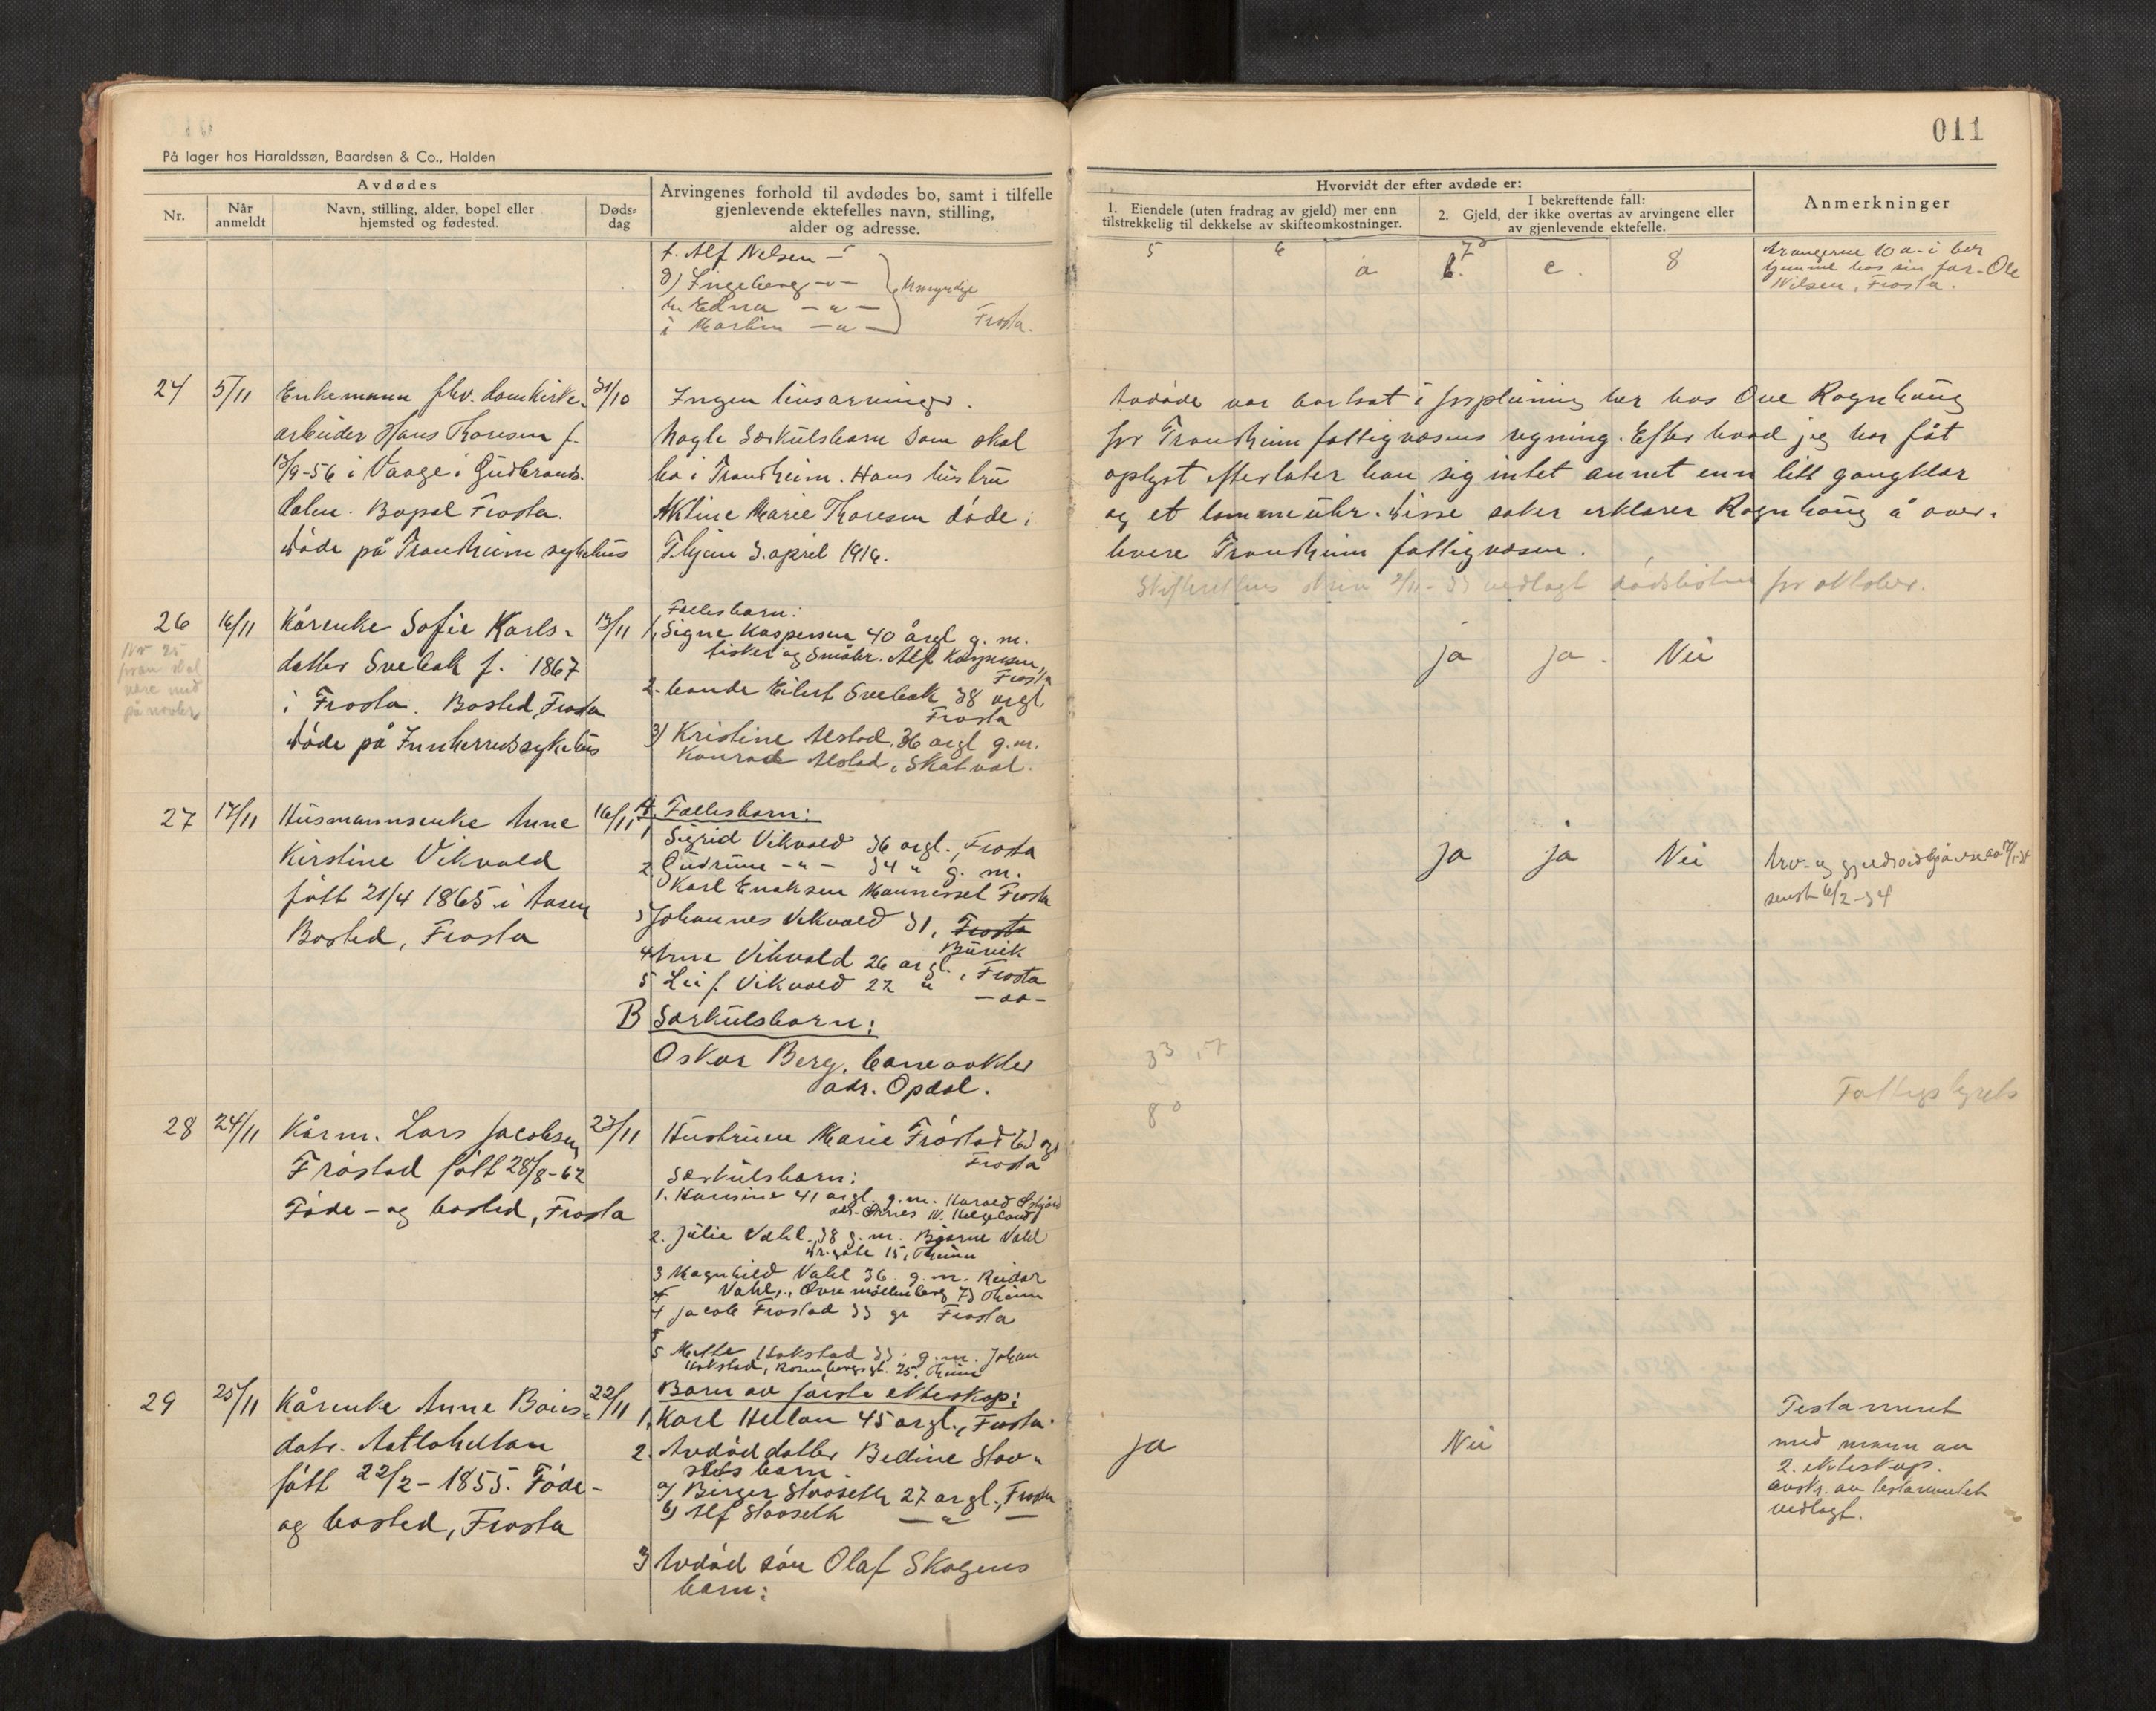 På lager hos Haraldssøn, Baardsen & Co., Halden
Avdødes
Nr.
Når anmeldt
Navn, stilling, alder, bopel eller
hjemsted og fødested.
Døds-
dag
Arvingenes forhold til avdødes bo, samt i tilfelle
gjenlevende ektefelles navn, stilling,
alder og adresse.
f. Alf Nilsen - "
g) Ingeborg - " -
h. Edna - " -
i Martin - " -
Umyndige
Frosta.
24 5/11 Enkemann fhv. domkirke- 31/10
arbeider Hans Thoresen f.
13/9-56 i Vaage i Gudbrands-
dalen. Bopel Frosta.
Døde på Trondheim sykehus
Ingen livsarvinger.
Nogle Særkulsbarn som skal
bo i Trondheim. Hans hustru
Aktine Marie Thoresen døde i
T.hjem 3. april 1916.
26 16/11 Kårenke Sofie Karls- 13/11
datter Svebak f. 1867
i Frosta. Bosted, Frosta
Døde på Innherred sykehus
Nr 25
skal
være med
Fællesbarn:
1, Signe Kaspersen 40 årgl g. m.
fisker og småbr. Alf Kaspersen,
Frosta
2. bonde Eilert Svebak 38 årgl
Frosta
3) Kristine Alstad, 36 årgl g.m.
Konrad Alstad, Skatval.
27 17/11 Husmannsenke Anne 16/11
Kirstine Vikvald
født 21/4 1865 i Aasen
Bosted, Frosta
A. Fællesbarn:
1 Sigrid Vikvald 36 årgl., Frosta
2 Gudrune - " - 34 " g. m.
Karl Enoksen Mannissel Frosta
3 Johannes Vikvald 31, Frosta
Buvik
4 Anne Vikvald 26 årgl., Frosta
5 Leif Vikvald 22 " - do -
B Særkulsbarn:
Oskar Berg, banevokter
adr. Opdal.
28 24/11 Kårm. Lars Jacobsen 23/11
Frøstad født 28/8-62
Føde- og bosted, Frosta
Hustruen Marie Frøstad
Frosta
Særkulsbarn:
1. Hansine 41 årgl. g.m. Harald
N. Helgeland
2. Julie Vahl. 38 g. m. Bjarne Vahl
15, Thjem
3 Magnhild Vahl 36 g. m. Reidar
Vahl, Øvre møllenberg 73 Thjem
4 Jacob Frøstad 33 gr Frosta
5
5 Mette Hokstad 33. g. m. Johan
Hokstad, Rosenborgsgt. 25, Thjem
29 25/11 Kårenke Anne Baårds- 22/11
datr.
født 22/2-1855. Føde-
og bosted, Frosta
Barn av første ekteskap:
1, Karl Hellan 45 årgl., Frosta.
2. Avdød datter Bedine
barn
a) Birger 27 årgl., Frosta
b) Alf - " -
3 Avdød søn Olaf Skogens
barn:
011
Hvorvidt der efter avdøde er:
1. Eiendele (uten fradrag av gjeld) mer enn
tilstrekkelig til dekkelse av skifteomkostninger.
I bekreftende fall:
2. Gjeld, der ikke overtas av arvingene eller
av gjenlevende ektefelle.
Anmerkninger
5 6 a 7 b. c. 8
Arvingerne 10 a-i bor
hjemme hos sin far - Ole
Nilsen, Frosta.
Avdøde var bortsat i forpleining her hos Ove Rognhaug
for Trondheim fattigvæsens regning. Efter hvad jeg har fåt
oplyst efterlater han sig intet annet enn litt gangklær
og et lommeuhr. Disse saker erklærer Rognhaug å over-
levere Trondheim fattigvæsen.
Skifterettens skriv 9/11-33 vedlagt dødslisten for oktober.
ja ja. Nei
ja ja Nei
Arv- og
sendt 6/2-34
33,57
80
Fattigstyrets
ja Nei
Testament
med mann av
2. ekteskap.
avskr. av testamentet
vedlagt.